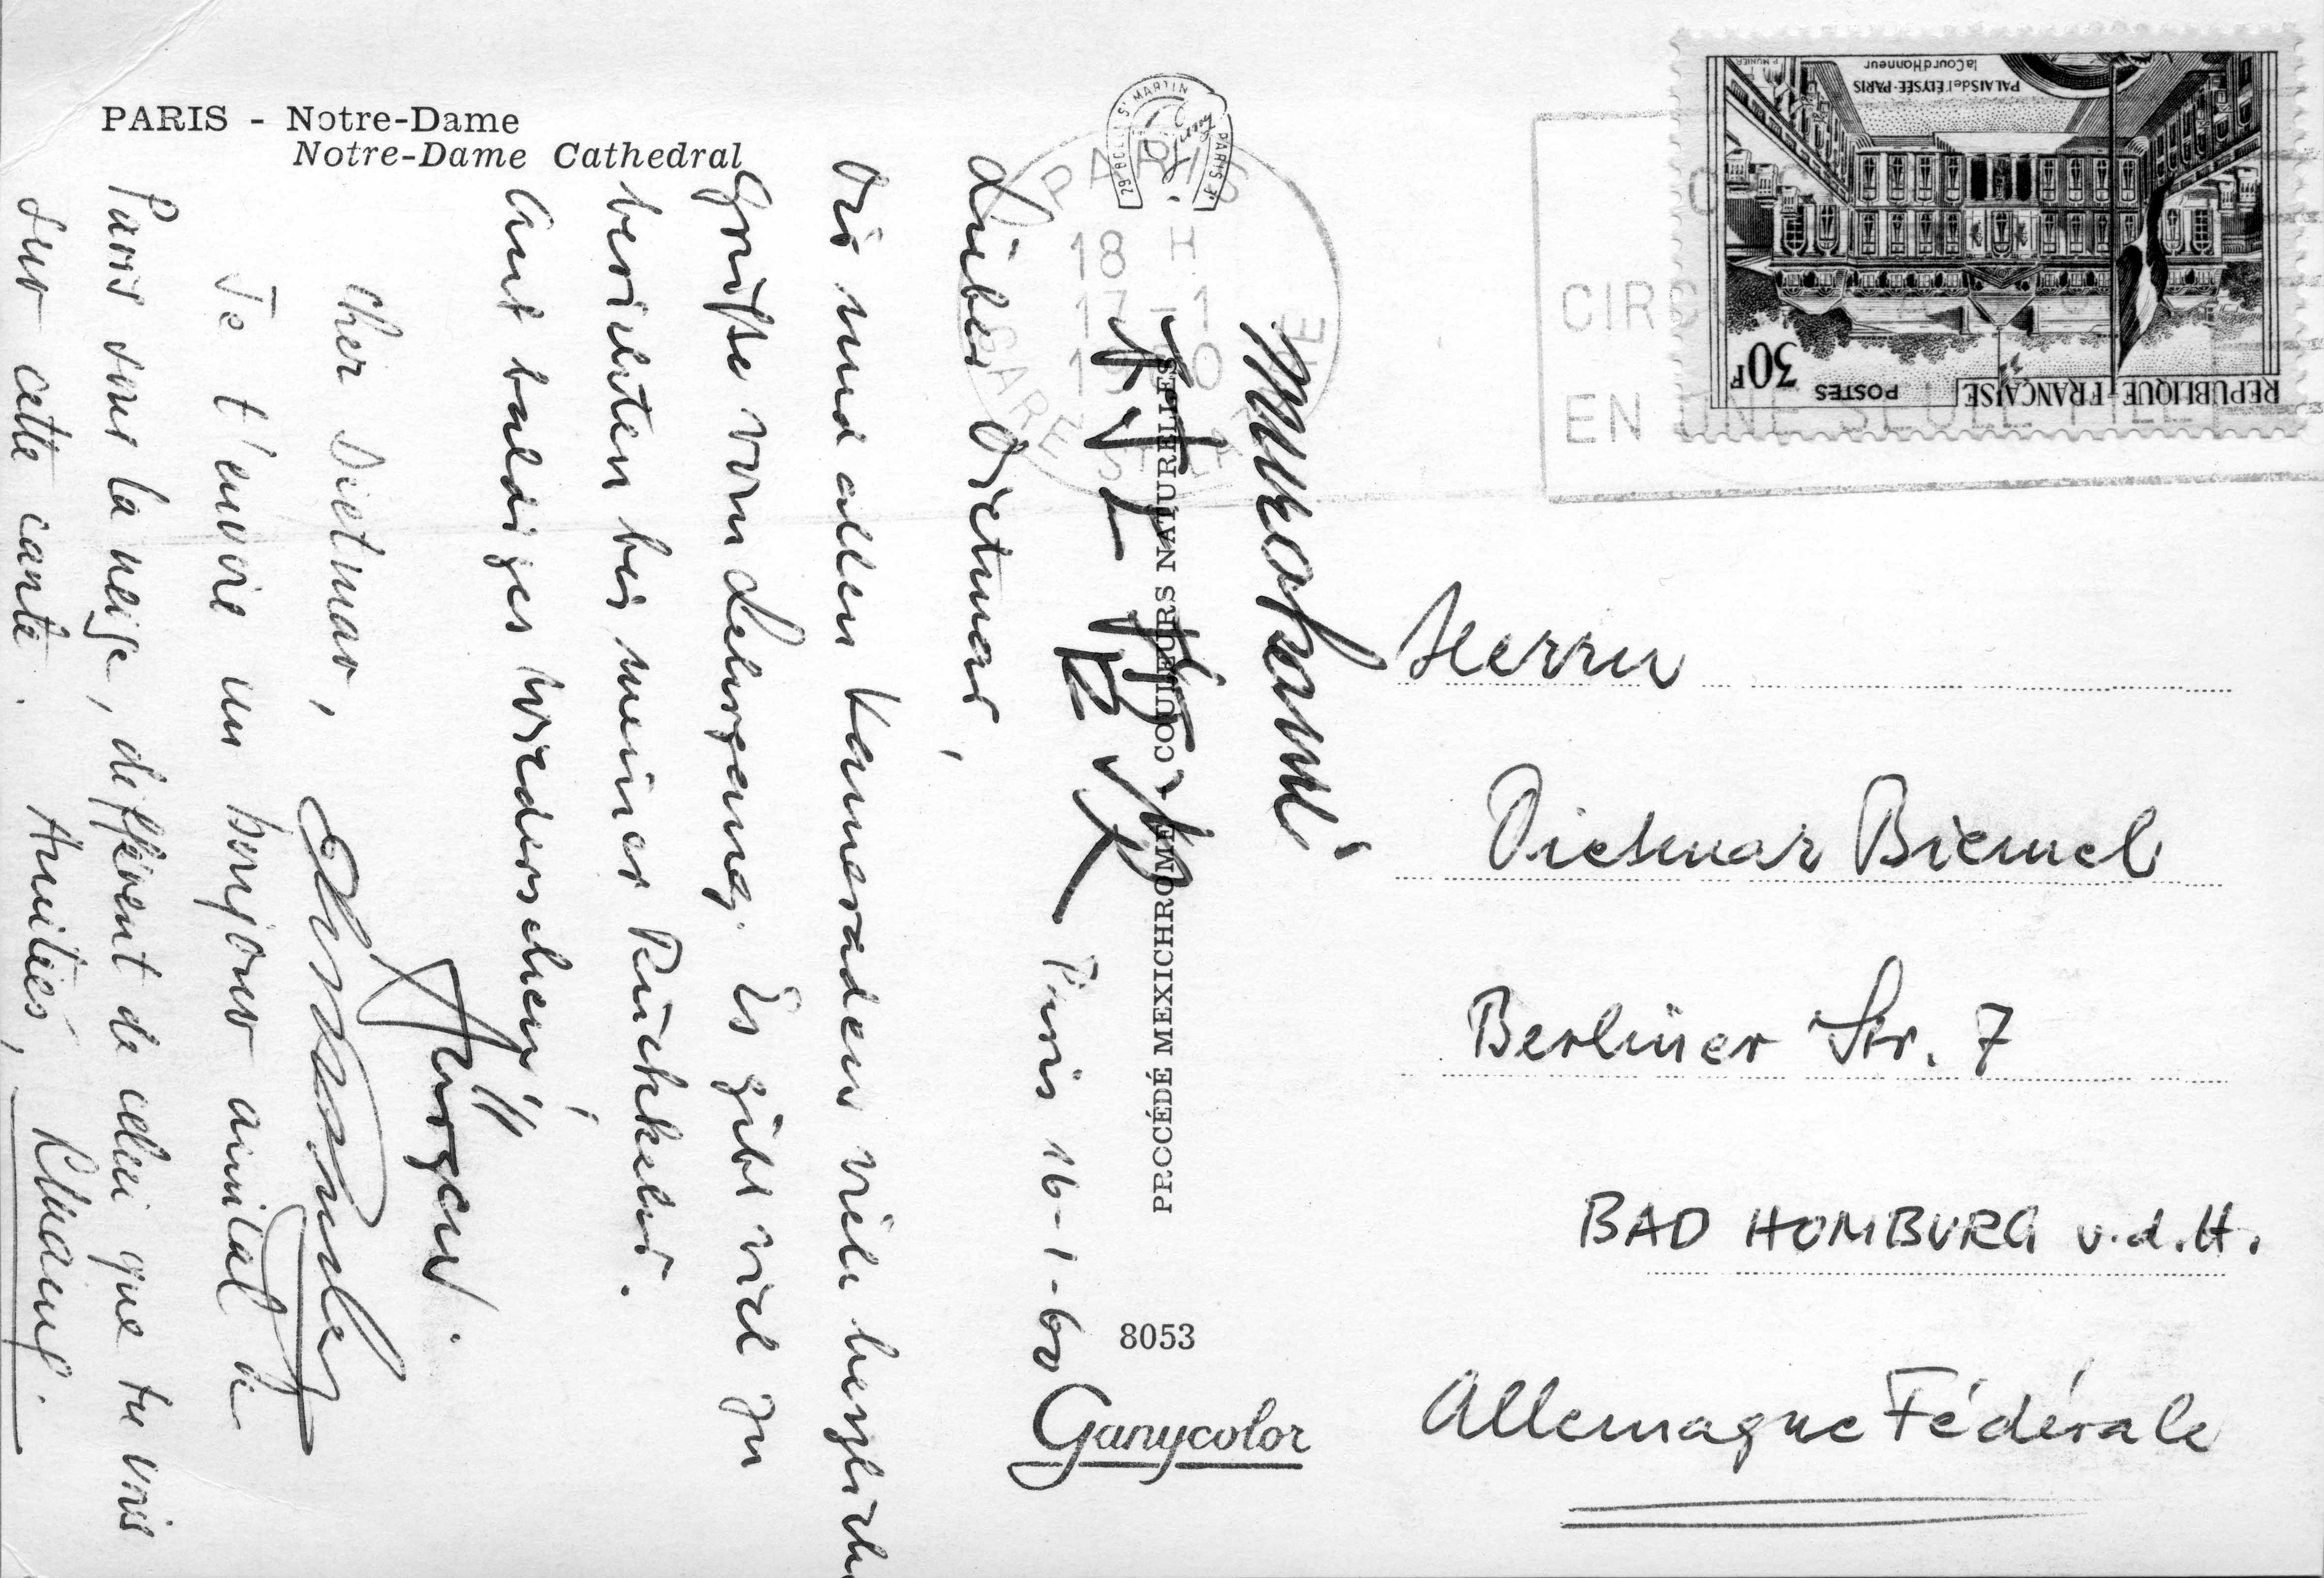 PARIS - Notre-Dame
Notre-Dame Cathedral
Paris 16-1-60
Lieber Dietmar,
Dir und allen Kameraden viele herzliche
Grüße vom Lehrgang. Es gibt viel zu
berichten bei meiner Rückkehr.
Auf baldiges Wiedersehen,
Jürgen.
Cher Dietmar,
Je t'envoie un bonjour amical de
Paris sous la neige, différent de celui que tu vois
sur cette carte.
Amitiés,
Murakami
29 BOUL. ST MARTIN PARIS 3e
PROCÉDÉ MEXICHROME - COULEURS NATURELLES
8053
Ganycolor
PARIS
18 H
17 -1
1960
GARE ST LAZARE
CIRC
EN UNE SEULE
REPUBLIQUE FRANÇAISE
POSTES
30F
PALAIS de l'ELYSÉE-PARIS
la Cour d'Honneur
P. MUNIER
Herrn
Dietmar Biemel
Berliner Str. 7
BAD HOMBURG v.d.H.
Allemagne Fédérale